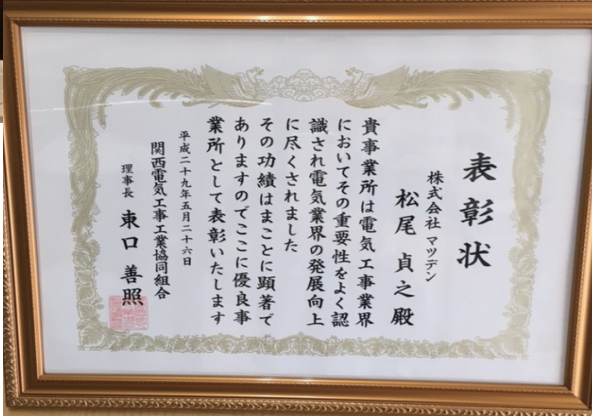 表彰状
株式会社 マツデン
松尾 貞之殿
貴事業所は電気工事業界
においてその重要性をよく認
識され電気業界の発展向上
に尽くされました
その功績はまことに顕著で
ありますのでここに優良事
業所として表彰いたします
平成二十九年五月二十六日
関西電気工事工業協同組合
理事長 東口 善照